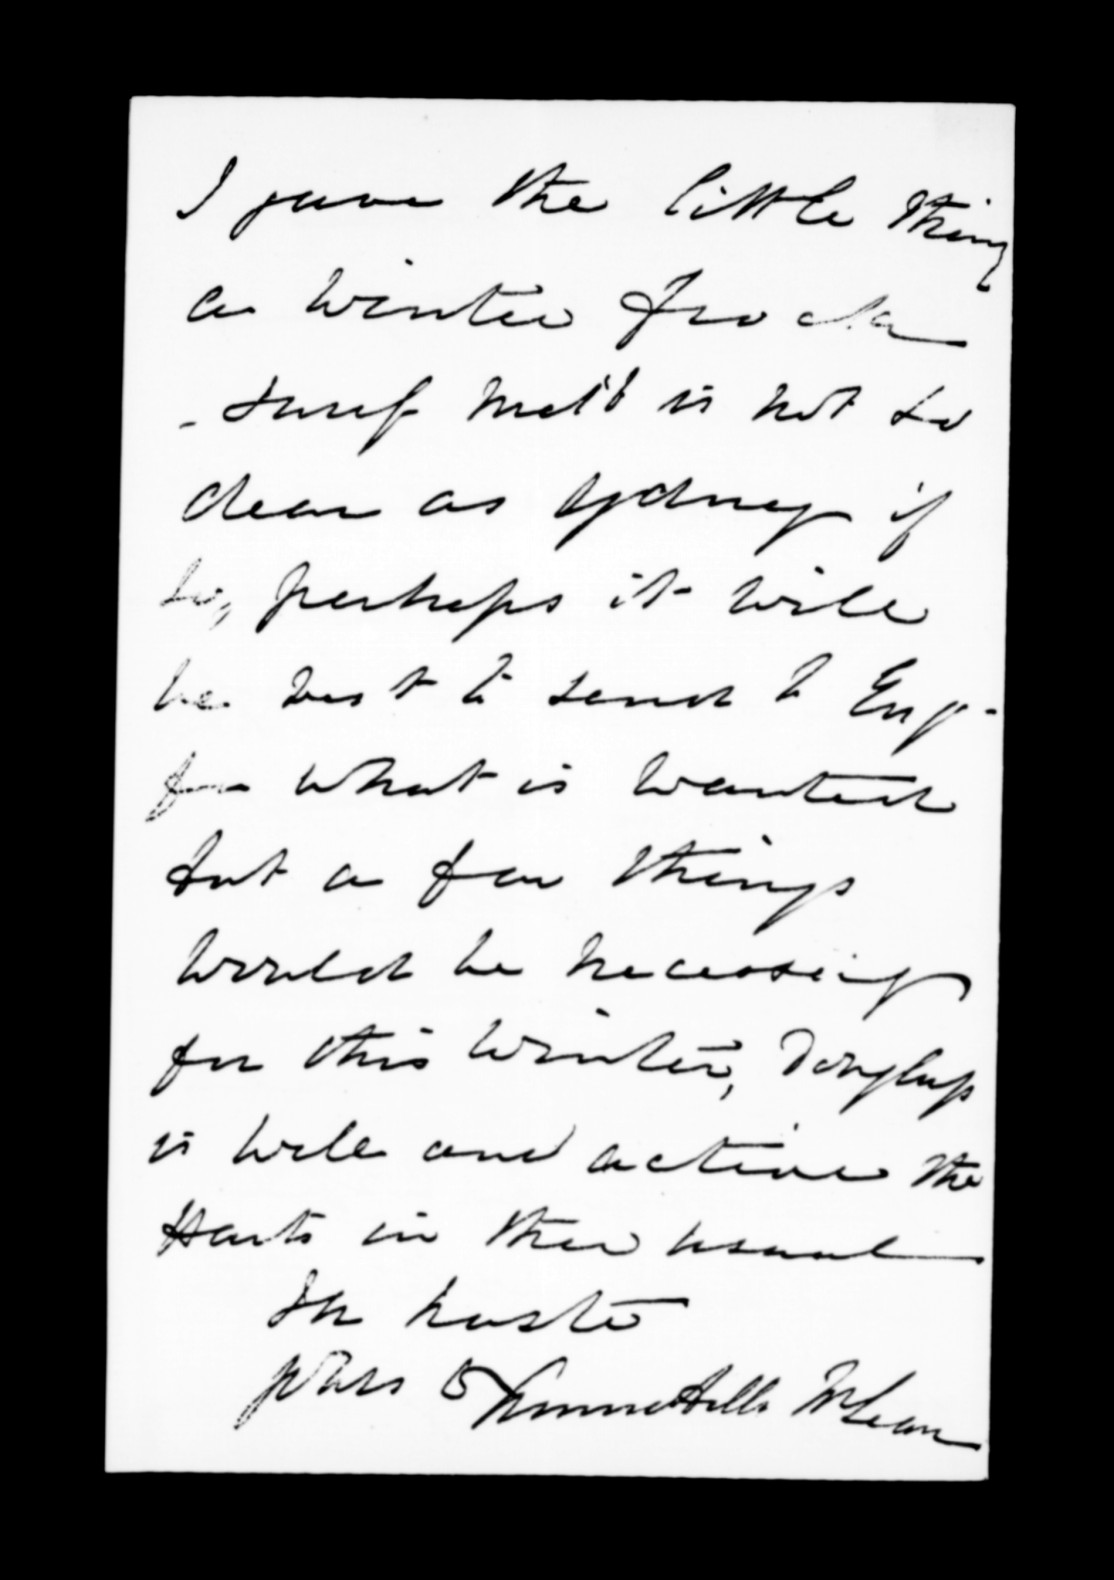 I gave the little thing
a winter frock
- surely Melb is not so
dear as Sydney if
so, perhaps it will
be best to send to Eng-
for what is wanted
but a few things
would be necessary
for this winter, Douglass
is well and active the
Harts in the usual
In haste
yours
McLean